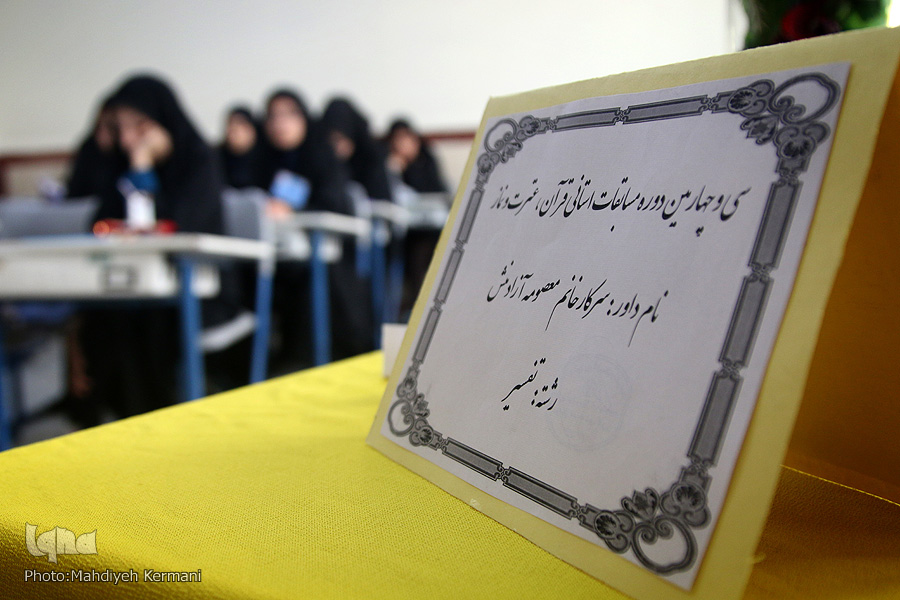 سی و چهارمین دوره مسابقات استانی قرآن، عترت و نماز
نام داور: سرکار خانم معصومه آزادمنش
رشته: تفسیر
iqna
Photo:Mahdiyeh Kermani